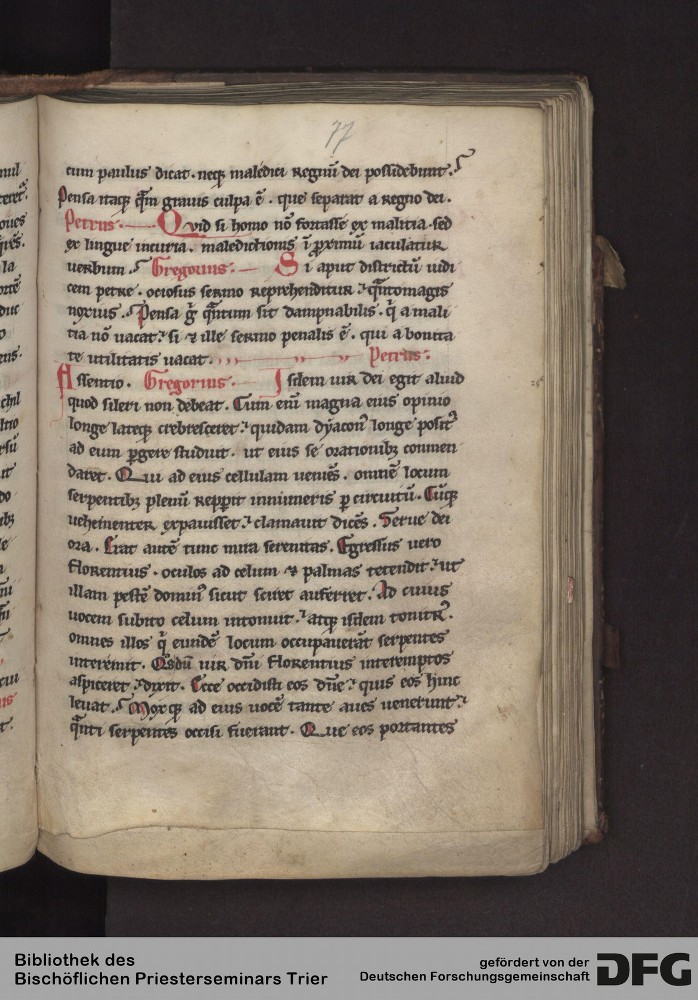 77
cum paulus dicat. neq; maledici regnū dei possidebunt.
Pensa itaq; q̄m grauis culpa ē. que separat a regno dei.
Petrus. Qvid si homo nō fortasse ex malitia. sed
ex lingue incuria. maledictionis ī p̄ximū iaculatur
uerbum. Gregorius. Si aput districtū iudi
cem petre. ociosus sermo reprehenditur. q̄ntomagis
noxius. Pensa ḡ q̄ntum sit dampnabilis. q̄ a mali
tia nō uacat. si & ille sermo penalis ē. qui a bonita
te utilitatis uacat. Petrus.
Assentio. Gregorius. Isdem uir dei egit aliud
quod sileri non debeat. Cum eni magna eius opinio
longe lateq; crebresceret. quidam dyacon' longe posit'
ad eum p̄gere studuit. ut eius se orationib; conmen
daret. Qui ad eius cellulam ueniēs. omnē locum
serpentib; plenū repp̄it innumeris p circuitū. Cūq;
uehementer expauisset. clamauit dicēs. Serue dei
ora. Erat autē tunc mira serenitas. Egressus uero
florentius. oculos ad celum & palmas tetendit. ut
illam pestē domin' sicut sciret auferret. Ad cuius
uocem subito celum intonuit. atq; isdem tonitr'.
omnes illos q̄ eundē locum occupauerāt serpentes
interemit. Q̄s dū uir dn̄i florentius interemptos
aspiceret. dixit. Ecce occidisti eos dn̄e. quis eos hinc
leuat. Moxq; ad eius uocē tante aues uenerunt.
q̄nti serpentes occisi fuerant. Que eos portantes
Bibliothek des
Bischöflichen Priesterseminars Trier
gefördert von der
Deutschen Forschungsgemeinschaft
DFG